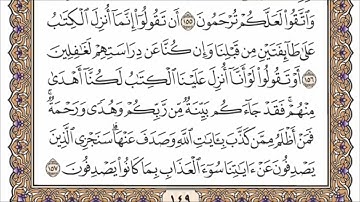 وَٱتَّقُوا۟ لَعَلَّكُمْ تُرْحَمُونَ ١٥٥ أَن تَقُولُوٓا۟ إِنَّمَآ أُنزِلَ ٱلْكِتَٰبُ
عَلَىٰ طَآئِفَتَيْنِ مِن قَبْلِنَا وَإِن كُنَّا عَن دِرَاسَتِهِمْ لَغَٰفِلِينَ
١٥٦ أَوْ تَقُولُوا۟ لَوْ أَنَّآ أُنزِلَ عَلَيْنَا ٱلْكِتَٰبُ لَكُنَّآ أَهْدَىٰ
مِنْهُمْ ۚ فَقَدْ جَآءَكُم بَيِّنَةٌ مِّن رَّبِّكُمْ وَهُدًى وَرَحْمَةٌ ۚ
فَمَنْ أَظْلَمُ مِمَّن كَذَّبَ بِـَٔايَٰتِ ٱللَّهِ وَصَدَفَ عَنْهَا ۗ سَنَجْزِى ٱلَّذِينَ
يَصْدِفُونَ عَنْ ءَايَٰتِنَا سُوٓءَ ٱلْعَذَابِ بِمَا كَانُوا۟ يَصْدِفُونَ ١٥٧
١٤٩